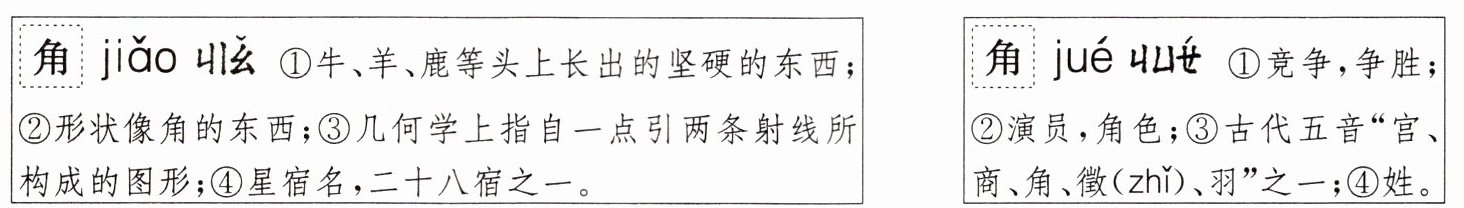 角 jiǎo ㄐㄧㄠˇ ①牛、羊、鹿等头上长出的坚硬的东西;
②形状像角的东西;③几何学上指自一点引两条射线所
构成的图形;④星宿名,二十八宿之一。
角 jué ㄐㄩㄝˊ ①竞争,争胜;
②演员,角色;③古代五音“宫、
商、角、徵(zhǐ)、羽”之一;④姓。